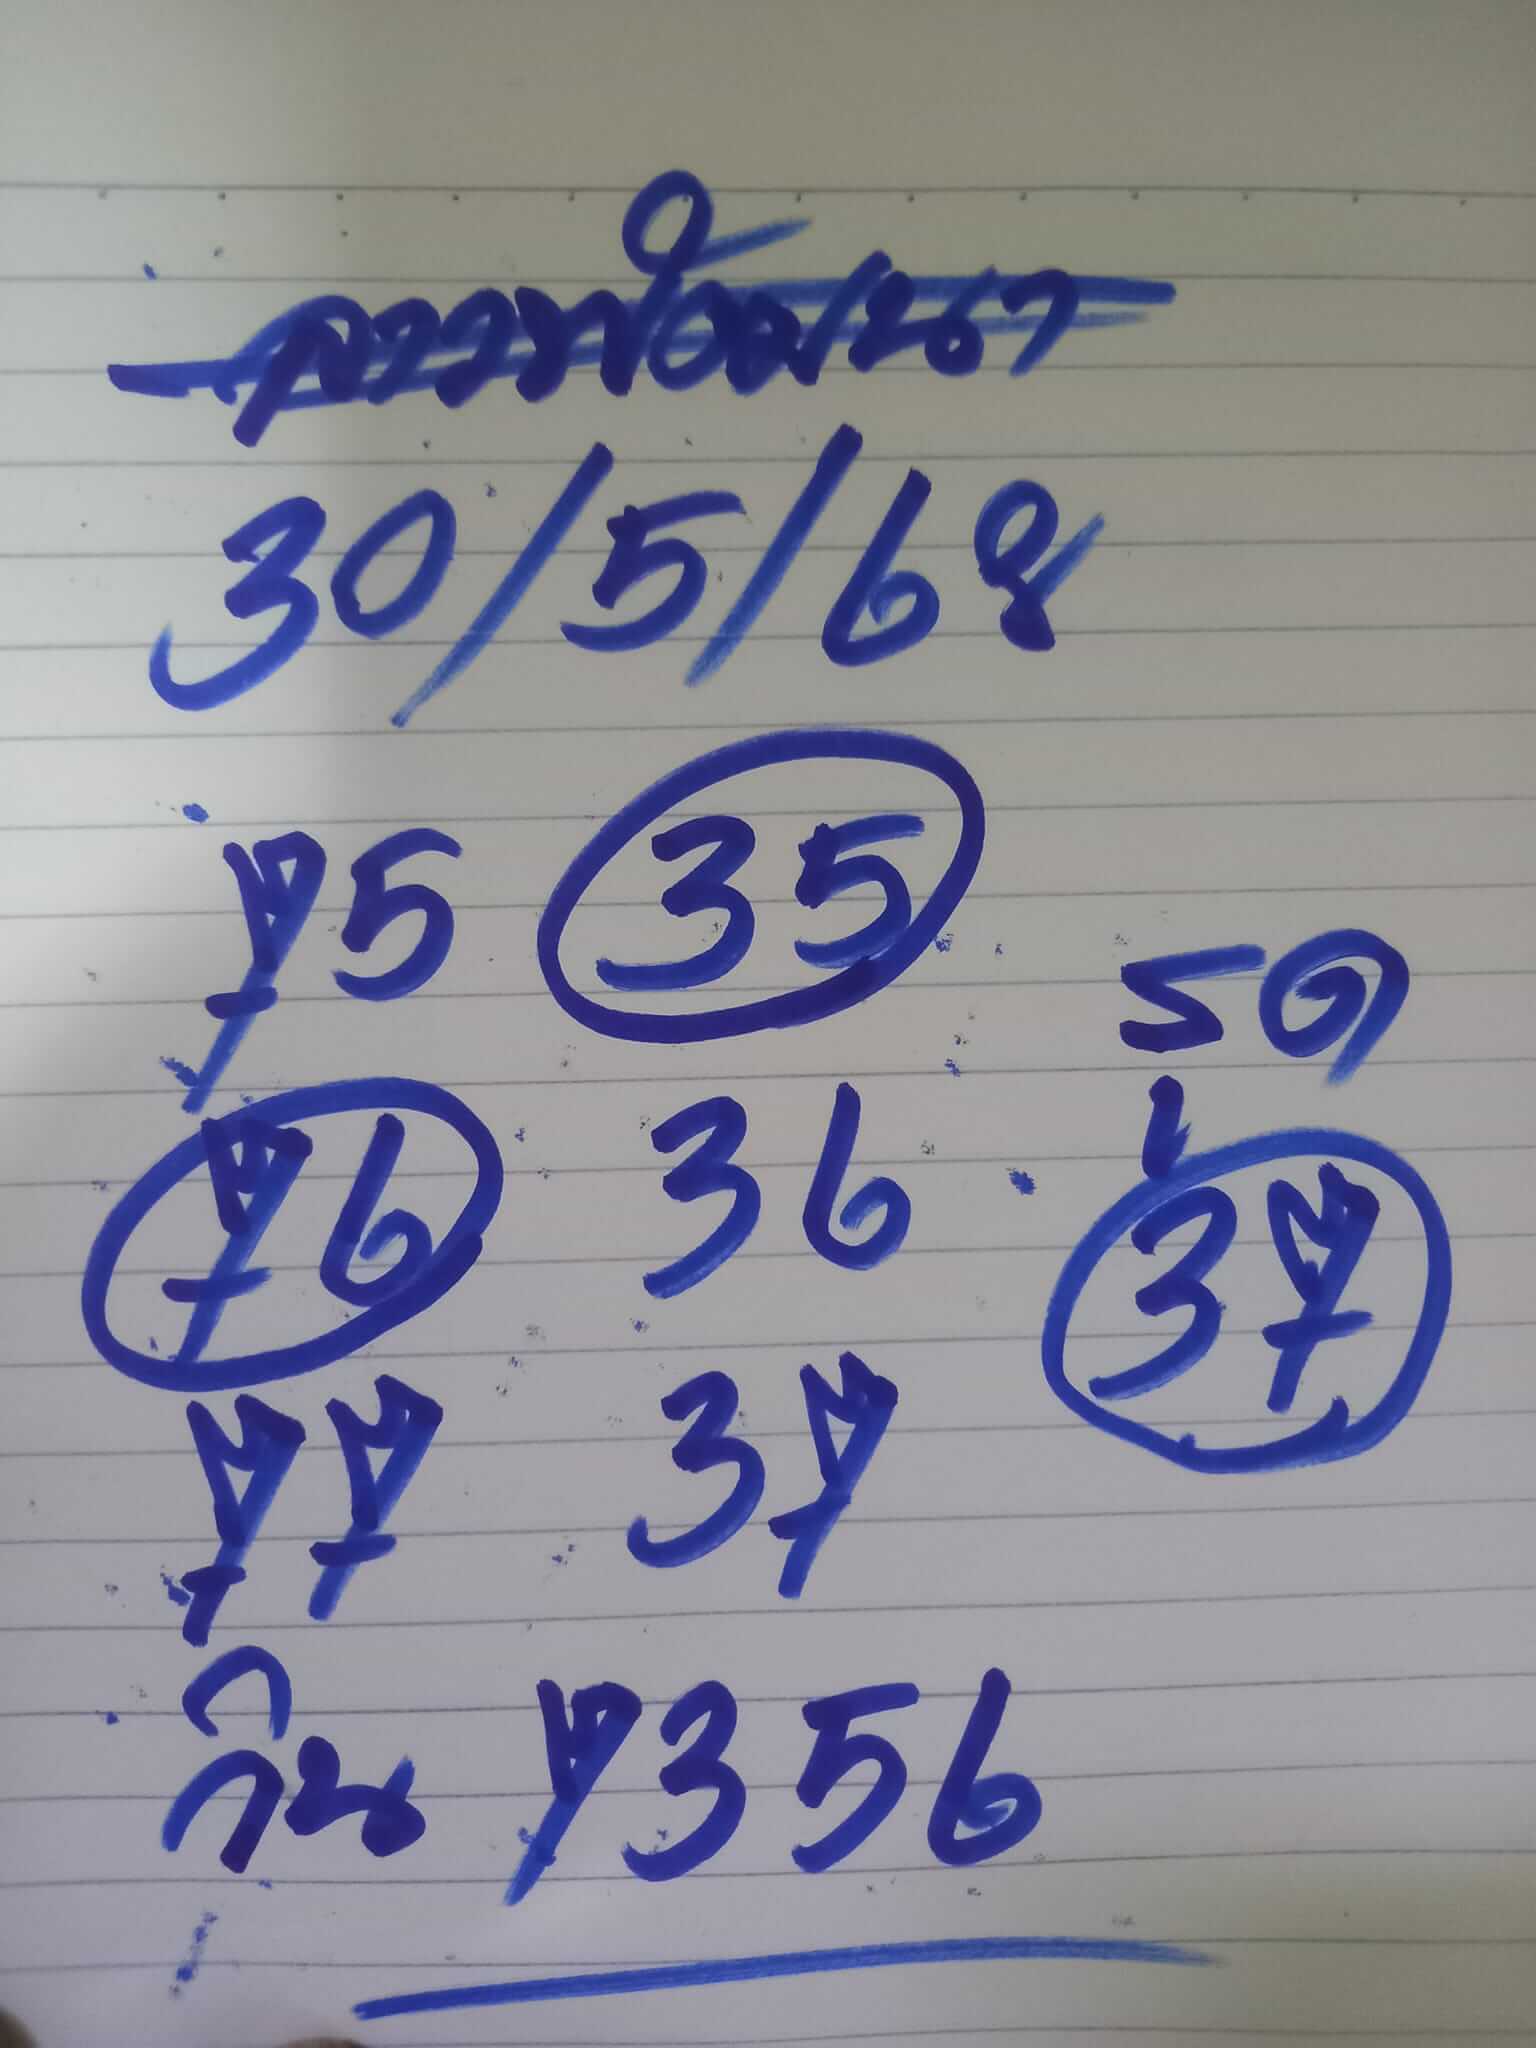 ลาวพัฒนา
30/5/68
75 35
รูด
76 36 37
77 37
กิน 7356